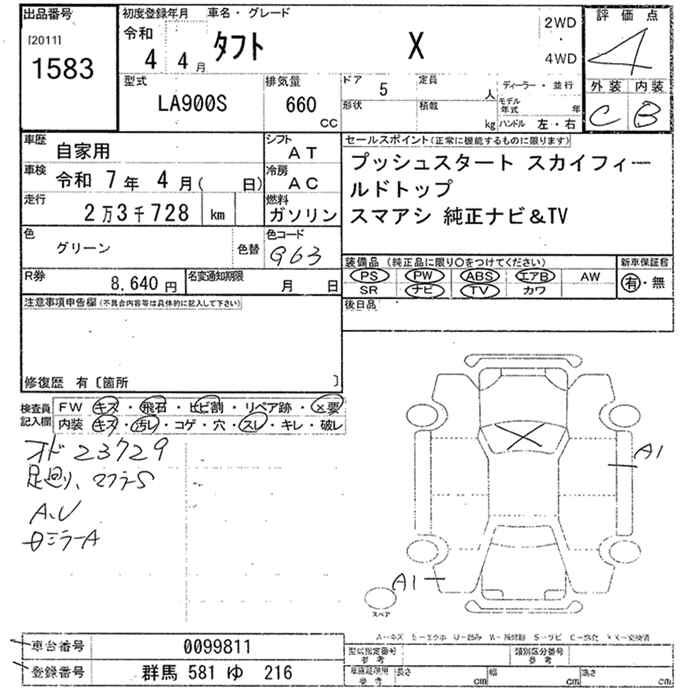 出品番号 初度登録年月 車名・グレード 2WD 評価点
[2011] 令和 タフト X ・ 4
1583 4 4月 4WD
外装 内装
型式 排気量 ドア 5 定員 人 ディーラー・並行 C B
LA900S 660 cc 形状 積載 kg モデル年式 年
ハンドル 左・右
車歴 自家用 シフト AT セールスポイント(正常に機能するものに限ります)
車検 令和 7年 4月( 日) 冷房 AC プッシュスタート スカイフィー
ルドトップ
走行 2万3千728 km 燃料 ガソリン スマアシ 純正ナビ&TV
色 グリーン 色替 色コード G63
装備品(純正品に限り○をつけてください) 新車保証書
R券 8,640円 名変通知期限 月 日 PS PW ABS エアB AW 有・無
SR ナビ TV カワ
注意事項申告欄(不具合内容等は具体的に記入して下さい) 後日品
修復歴 有〔箇所 〕
検査員記入欄 FW キズ・飛石・ヒビ割・リペア跡・×要
内装 キズ・汚レ・コゲ・穴・スレ・キレ・破レ
オド 23729
足廻り、マフラーS A1
A.U
A1
スペア
車台番号 0099811 型式指定番号 参考 類別区分番号 参考
登録番号 群馬 581 ゆ 216 参考 長さ cm 幅 cm 高さ cm